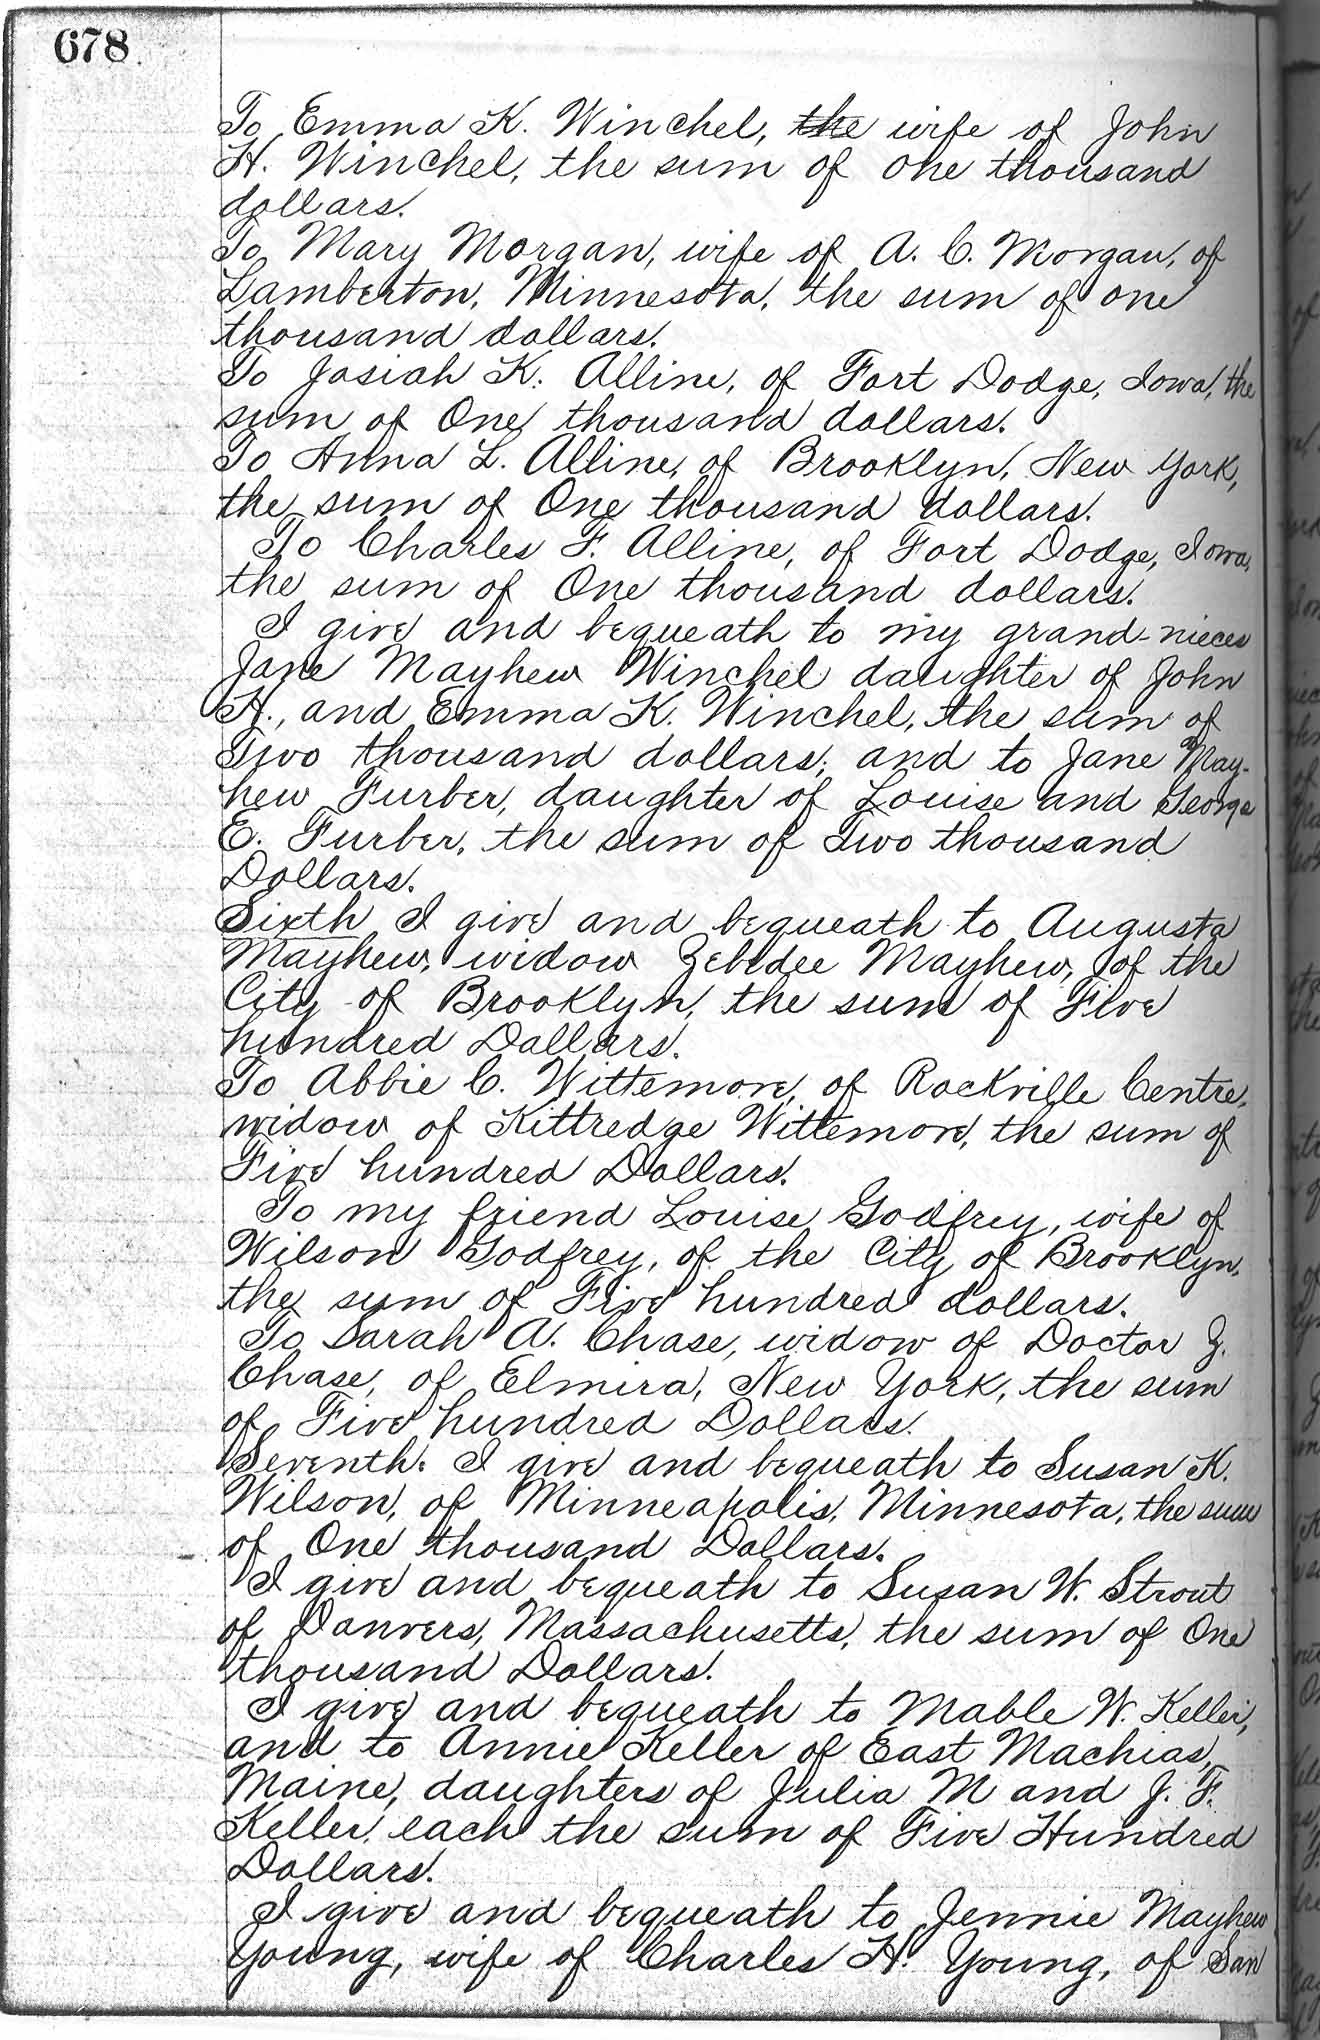 678
To Emma K. Winchel, the wife of John
H. Winchel, the sum of one thousand
dollars.
To Mary Morgan, wife of A. C. Morgan, of
Lamberton, Minnesota, the sum of one
thousand dollars.
To Josiah K. Alline, of Fort Dodge, Iowa, the
sum of One thousand dollars.
To Anna L. Alline, of Brooklyn, New York,
the sum of One thousand dollars.
To Charles F. Alline, of Fort Dodge, Iowa,
the sum of One thousand dollars.
I give and bequeath to my grand-nieces
Jane Mayhew Winchel daughter of John
H., and Emma K. Winchel, the sum of
Two thousand dollars; and to Jane May-
hew Furber, daughter of Louise and George
E. Furber, the sum of Two thousand
Dollars.
Sixth I give and bequeath to Augusta
Mayhew, widow Zebedee Mayhew, of the
City of Brooklyn, the sum of Five
hundred Dollars.
To Abbie C. Wittemore, of Rockville Centre,
widow of Kittredge Wittemore, the sum of
Five hundred Dollars.
To my friend Louise Godfrey, wife of
Wilson Godfrey, of the City of Brooklyn,
the sum of Five hundred dollars.
To Sarah A. Chase, widow of Doctor Z.
Chase, of Elmira, New York, the sum
of Five hundred Dollars.
Seventh. I give and bequeath to Susan K.
Wilson, of Minneapolis, Minnesota, the sum
of One thousand Dollars.
I give and bequeath to Susan W. Strout
of Danvers, Massachusetts, the sum of One
thousand Dollars.
I give and bequeath to Mable W. Keller,
and to Annie Keller of East Machias,
Maine, daughters of Julia M and J. F.
Keller, each the sum of Five Hundred
Dollars.
I give and bequeath to Jennie Mayhew
Young, wife of Charles H. Young, of San